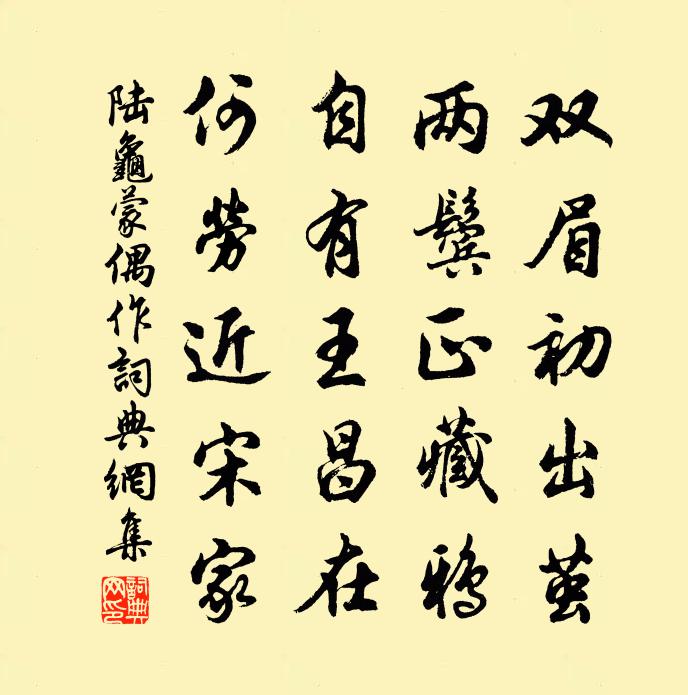 双眉初出茧
两鬓正藏鸦
自有王昌在
何劳近宋家
陆龜蒙偶作詞典網集
詞典网印